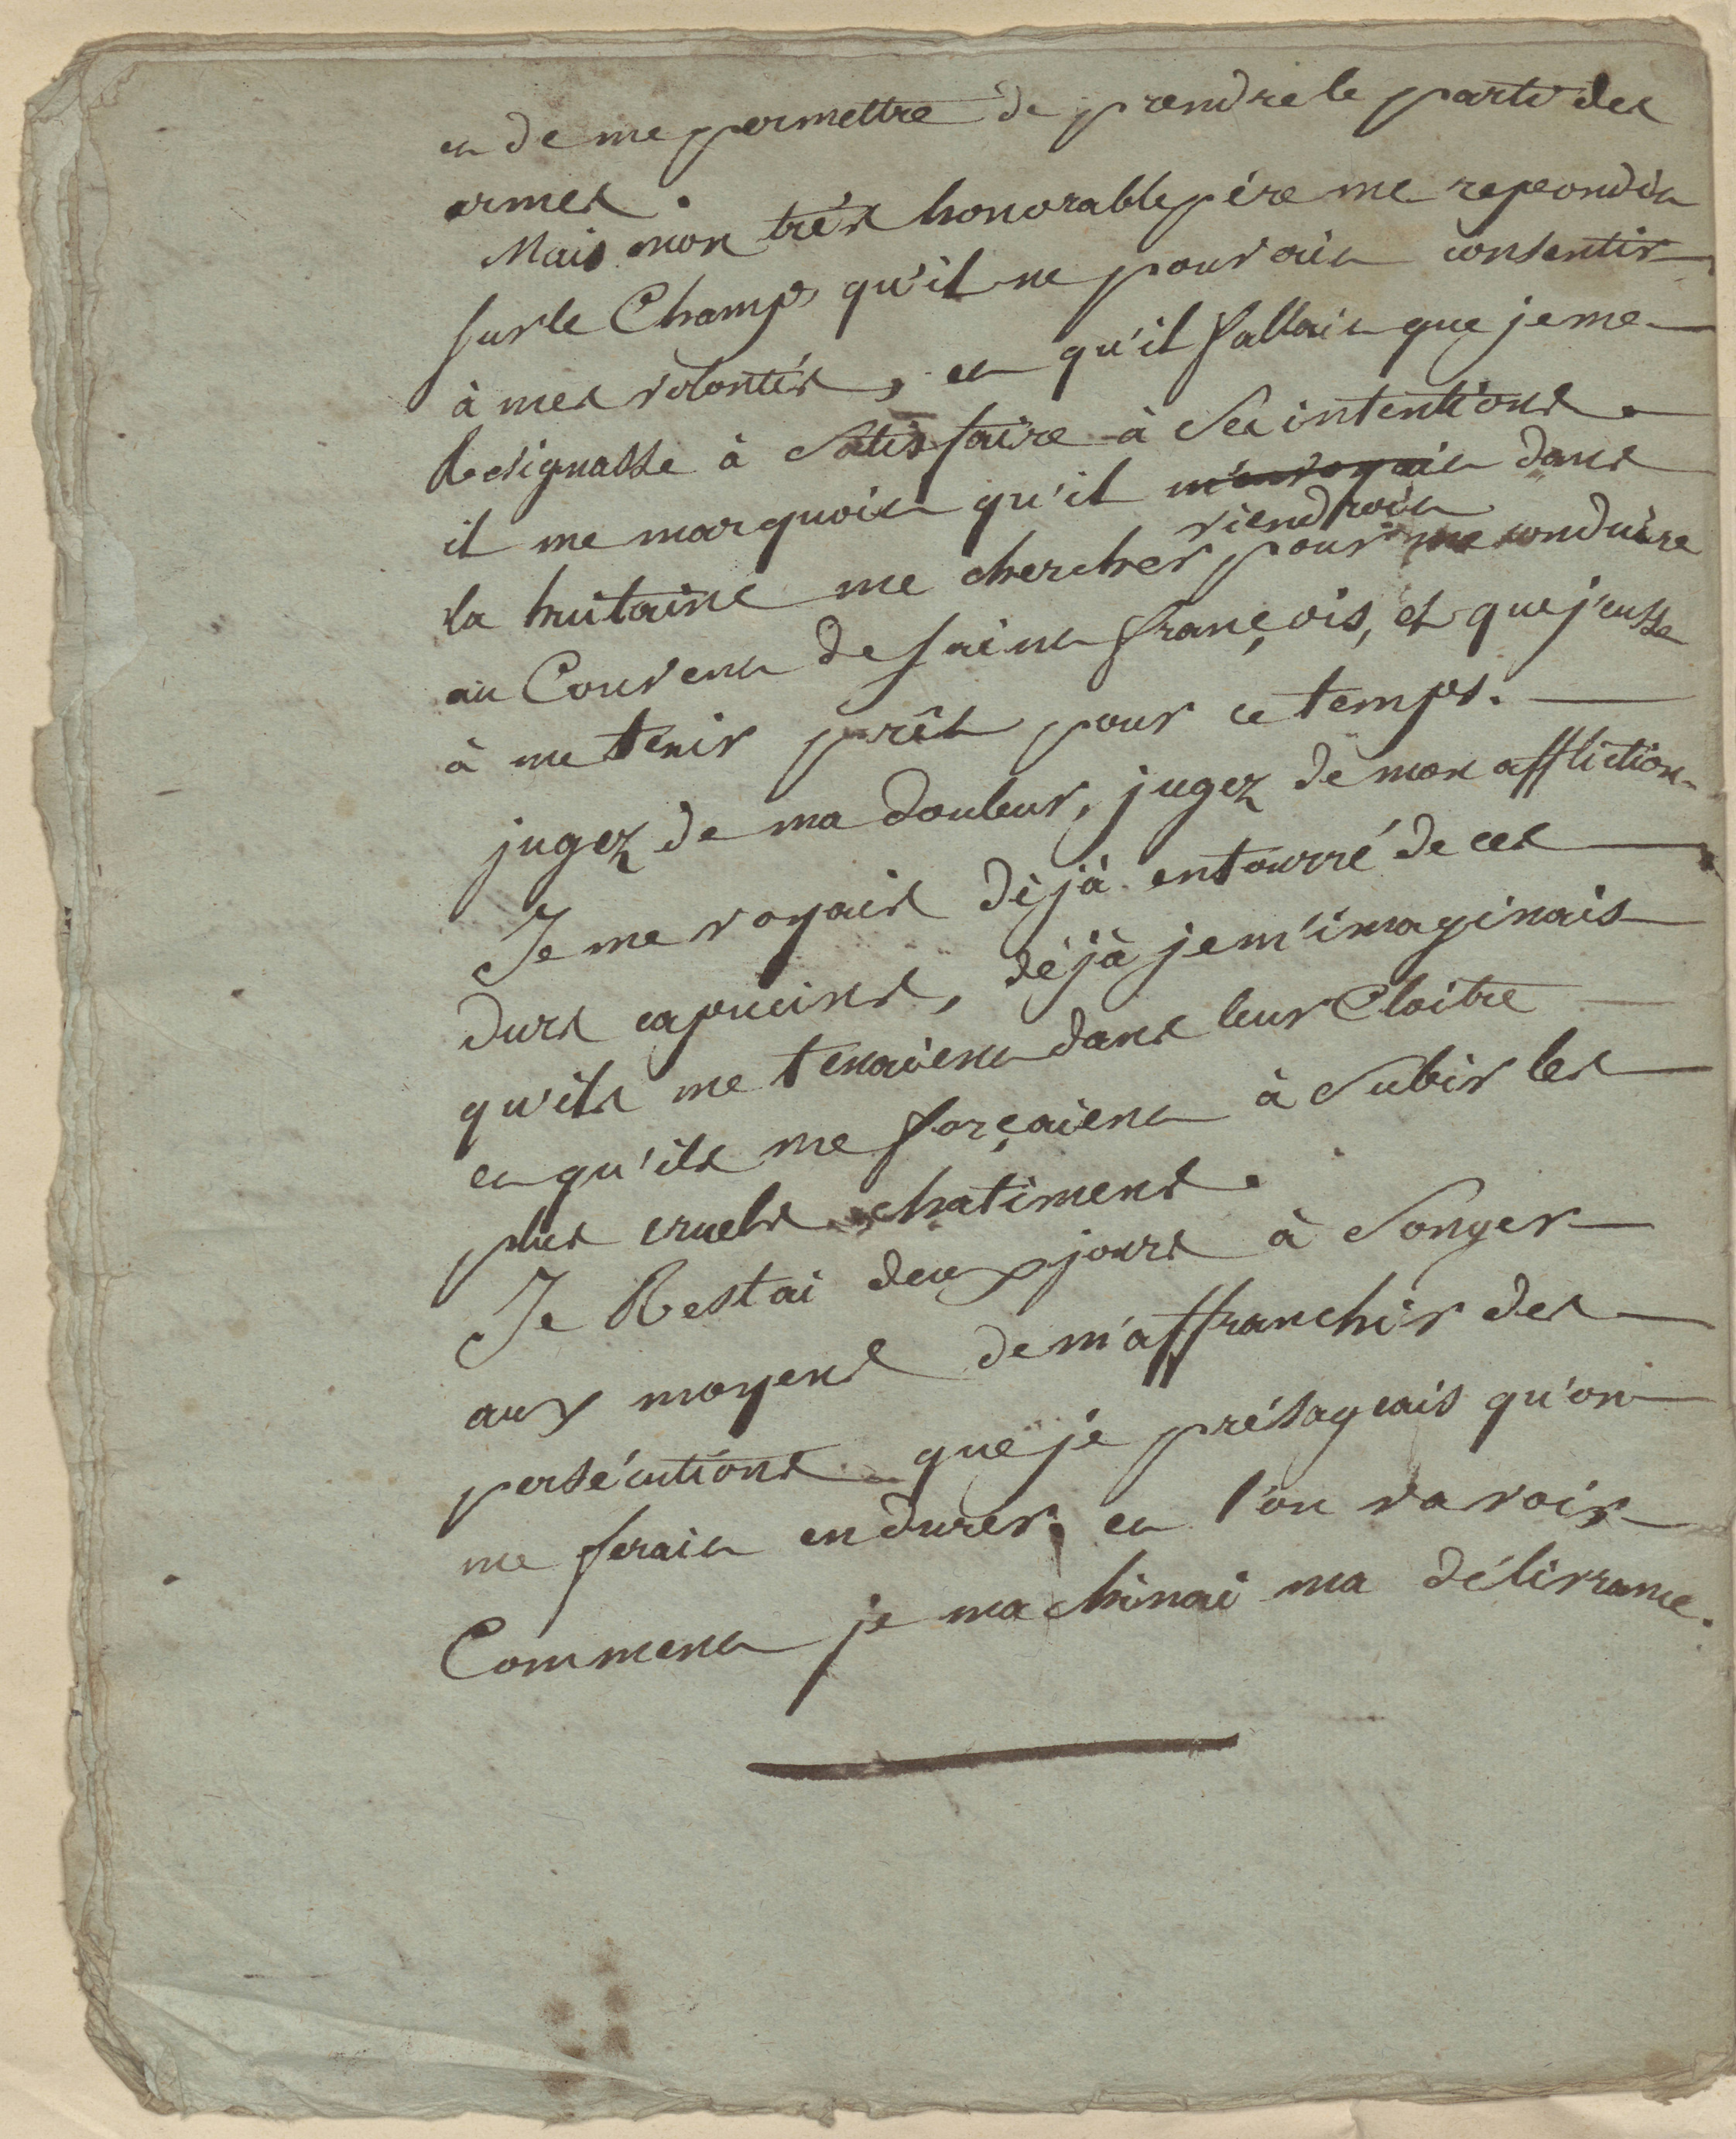 et de me permettre de prendre le parti des
armes.
Mais mon trés honorable pére me repondit
sur le Champ, qu'il ne pouvait consentir
à mes volontés, et qu'il fallait que je me
Resignasse à satisfaire à ses intentions.
il me marquoit qu'il m'envoyait dans
viendroit
la huitaine me chercher pour me conduire
au Couvent de saint françois, et que j'eusse
à me tenir prêt pour ce temps.
jugez de ma douleur, jugez de mon affliction.
Je me voyais déjà entourré de ces
durs capucins, déjà je m'imaginais
qu'ils me tenaient dans leur Cloitre
et qu'ils me forçaient à subir les
plus cruels chatimens.
Je Restai deux jours à songer
aux moyens de m'affranchir des
persécutions que je présageais qu'on
me ferait endurer, et l'on va voir
Comment je machinai ma délivrance.